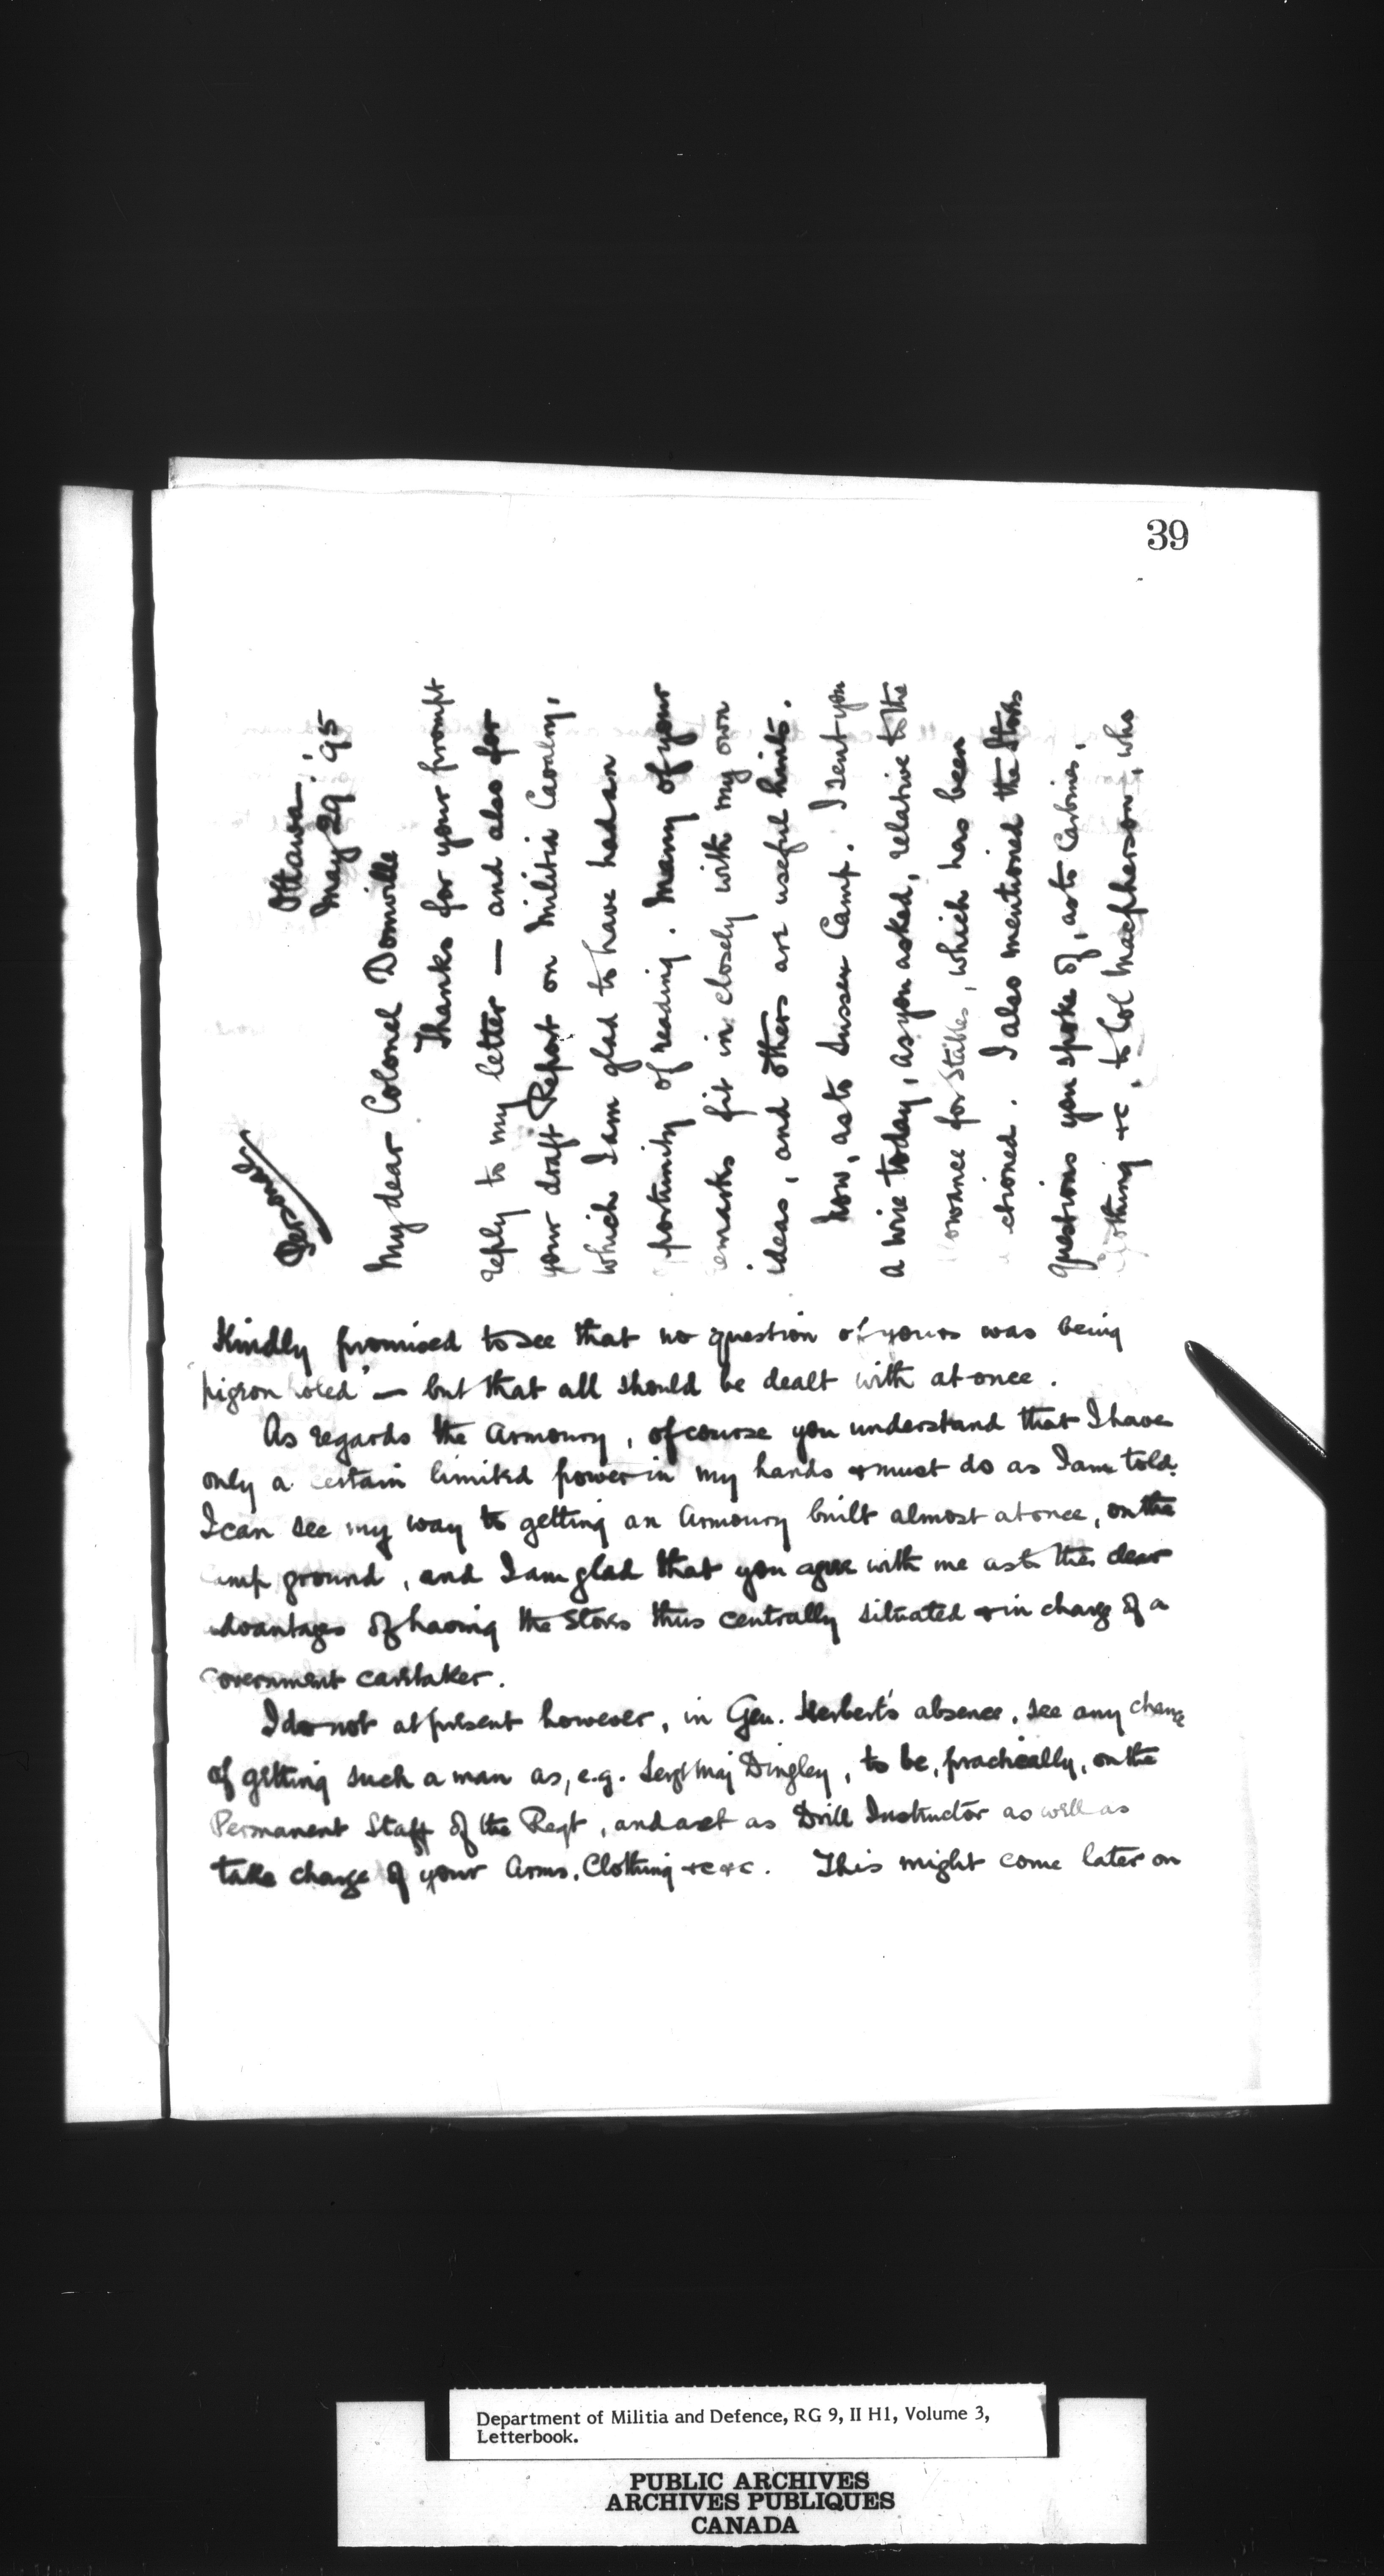 39
Personal
Ottawa
May 29. '95
My dear Colonel Domville
Thanks for your prompt
reply to my letter — and also for
your draft Report on Militia Cavalry,
which I am glad to have had an
portunity of reading. Many of your
emarks fit in closely with my own
ideas, and others are useful hints.
Now, as to Sussex Camp. I sent you
a wire today, as you asked, relative to the
lowance for Stables, which has been
ctioned. I also mentioned the Stores
questions you spoke of, as to Carbines,
Clothing &c, to Col Macpherson, who
Kindly promised to see that no question of yours was being
'pigeon holed' — but that all should be dealt with at once.
As regards the Armoury, of course you understand that I have
only a certain limited power in my hands & must do as I am told.
I can see my way to getting an Armoury built almost at once, on the
amp ground, and I am glad that you agree with me as to the clear
advantages of having the Stores thus centrally situated & in charge of a
Government caretaker.
I do not at present however, in Gen. Herbert's absence, see any chance
of getting such a man as, e.g. Sergt Maj Dingley, to be, practically, on the
Permanent Staff of the Regt, and act as Drill Instructor as well as
take charge of your Arms, Clothing &c &c. This might come later on
Department of Militia and Defence, RG 9, II H1, Volume 3,
Letterbook.
PUBLIC ARCHIVES
ARCHIVES PUBLIQUES
CANADA